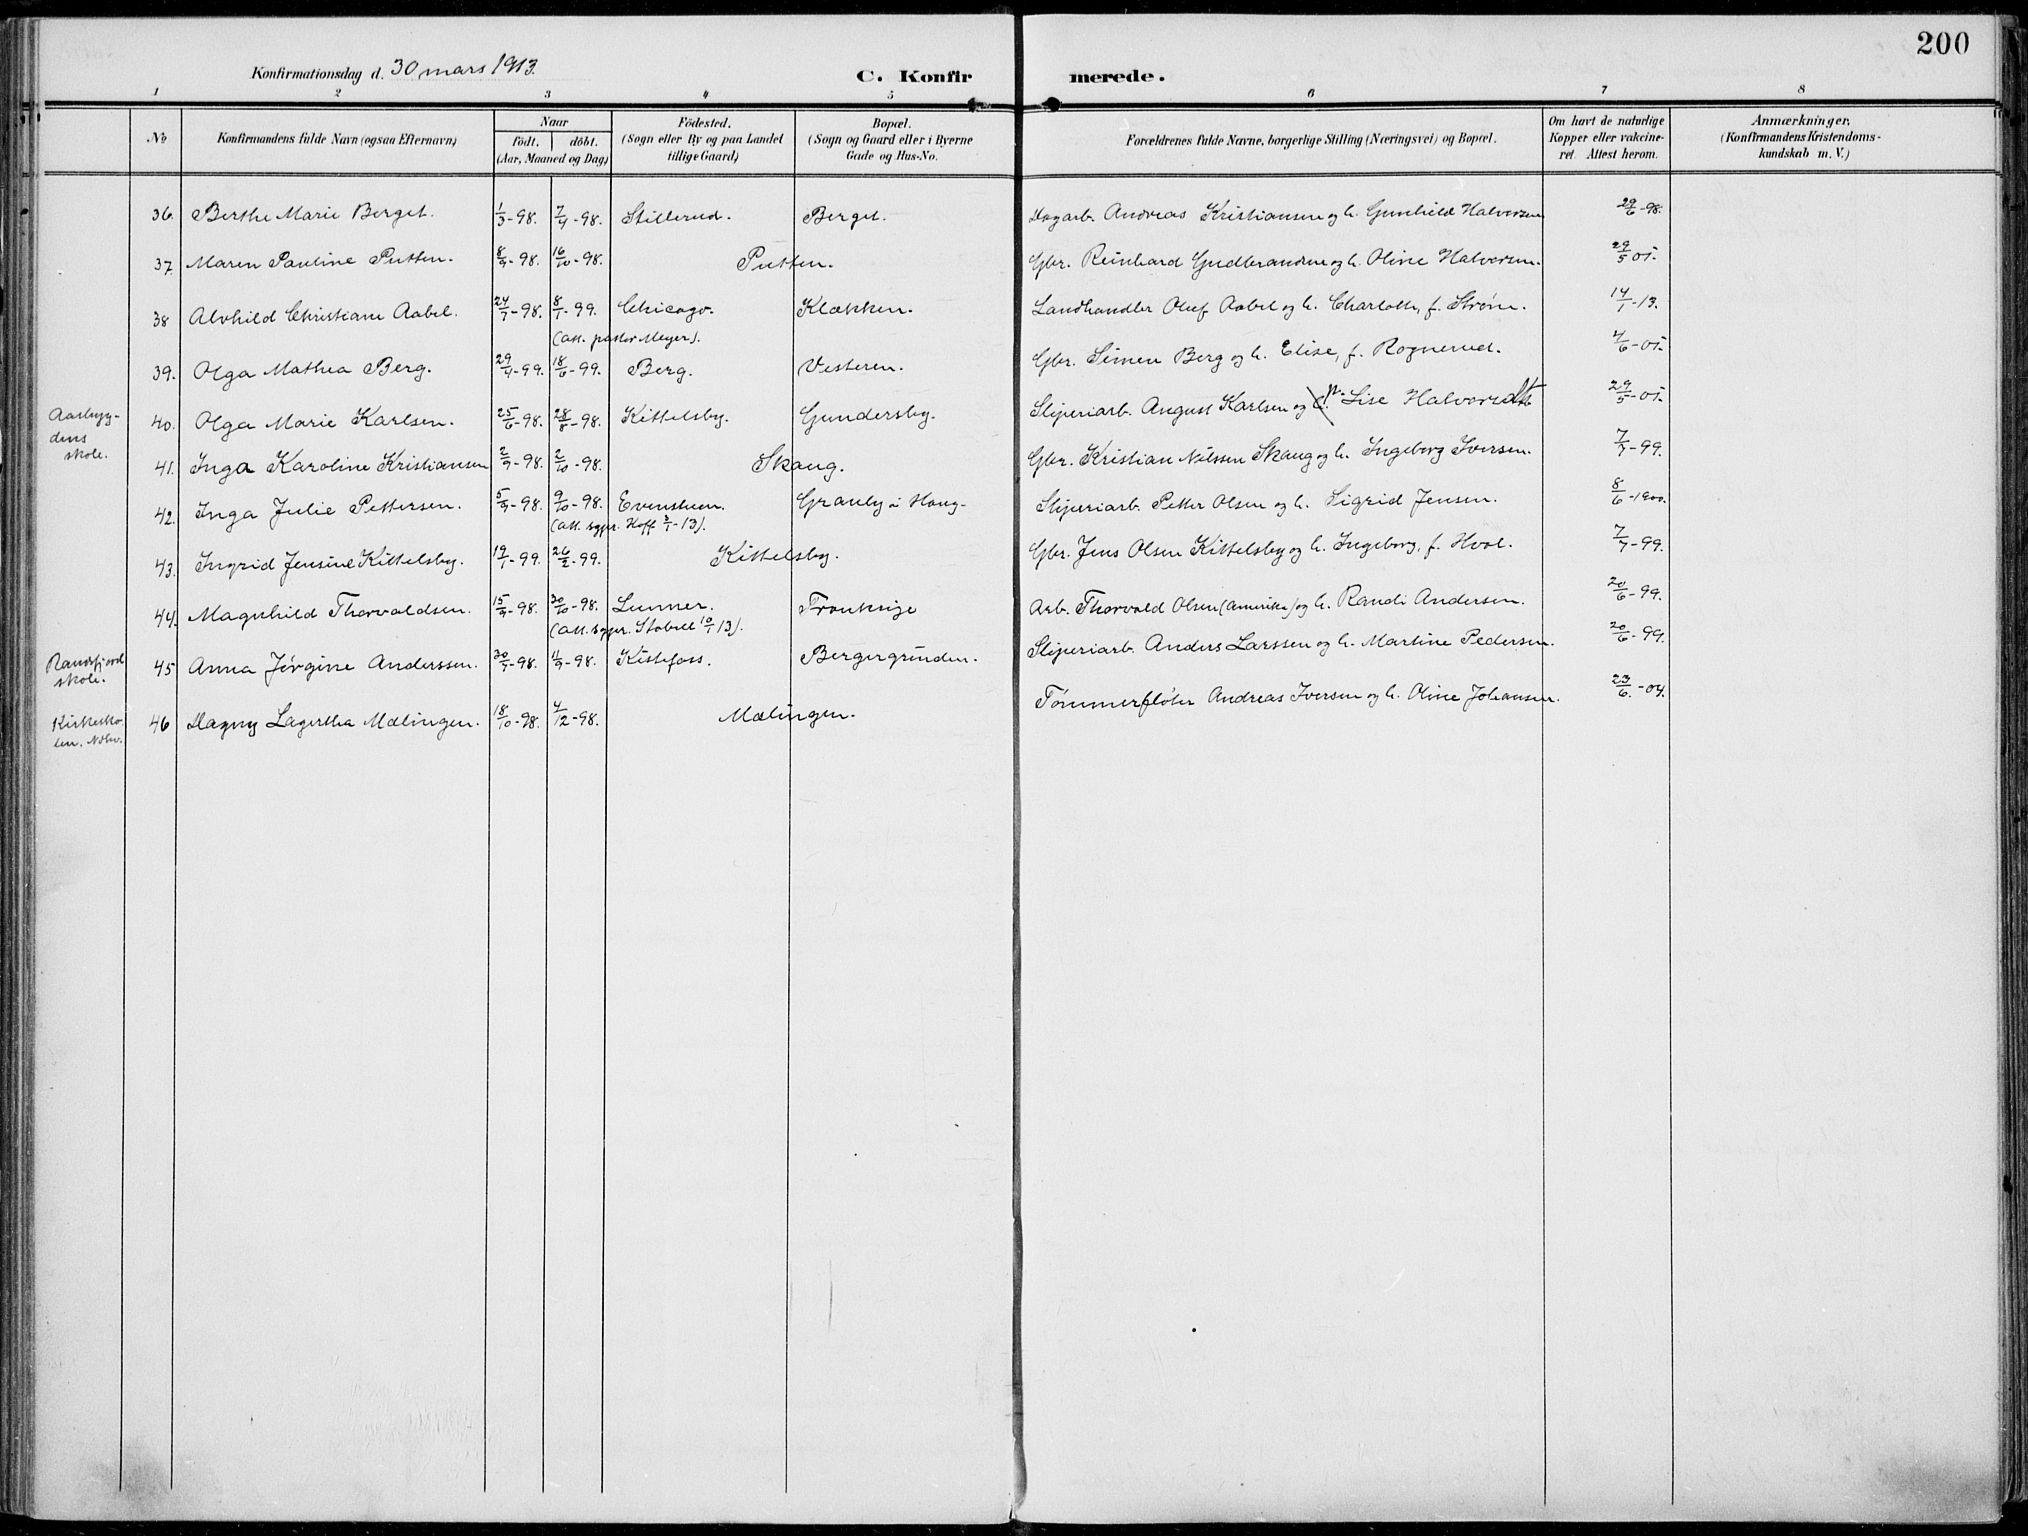 200
Konfirmationsdag d. 30 mars 1913.
C. Konfir merede.
1 2 3 4 5 6 7 8
No
Konfirmandens fulde Navn (ogsaa Efternavn)
Naar
födt. döbt.
(Aar, Maaned og Dag)
Födested.
(Sogn eller By og paa Landet
tillige Gaard)
Bopæl.
(Sogn og Gaard eller i Byerne
Gade og Hus-No.
Forældrenes fulde Navne, borgerlige Stilling (Næringsvei) og Bopæl.
Om havt de naturlige
Kopper eller vakcine-
ret Attest herom.
Anmærkninger,
(Konfirmandens Kristendoms-
kundskab m. V.)
36. Berthe Marie Berget. 1/3-98. 7/4-98. Stillerud. Berget. Dagarb. Andreas Kristiansen og h. Gunhild Halvorsen 29/6-98.
37. Maren Pauline Putten. 8/9-98. 16/10-98. Putten. Gbr. Reinhard Gudbrandsen og h. Oline Halvorsen. 29/5 05.
38 Alvhild Christiane Aabel. 24/7-98. 8/1-99. Chicago. Klækken. Landhandler Oluf Aabel og h. Charlotte, f. Strøm. 14/1-13.
(att. pastor Meyer).
39. Olga Mathea Berg. 29/4-99. 18/6-99. Berg. Vesteren. Gbr. Simen Berg og h. Elise, f. Rognerud. 4/6-05.
Aasbyg-
dens
skole.
40. Olga Marie Karlsen. 25/6-98. 28/8-98. Kittelsby. Gundersby. Sliperiarb. August Karlsen og Lise Halvorsdtt 29/5-05.
41. Inga Karoline Kristiansen 2/9-98. 2/10-98. Skaug. Gbr. Kristian Nilssen Skaug og h. Ingeborg Iversen. 7/7-99.
42. Inga Julie Pettersen. 5/9-98. 9/10-98. Evenstuen. Granby i Haug- Sliperiarb. Petter Olsen og h. Sigrid Jensen. 8/6-1900.
(att. sgpr. Hoff 3/1-13).
43. Ingrid Jensine Kittelsby. 19/1-99. 26/2-99. Kittelsby. Gbr. Jens Olsen Kittelsby og h. Ingeborg, f. Hval. 7/7-99.
44. Magnhild Thorvaldsen. 15/9-98. 30/10-98. Lunner. Arb. Thorvald Olsen (Amerika) og h. Randi Andersen. 20/6-99.
(att. sgpr. Stabell 10/1 13).
Randsfjord
skole.
45 Anna Jørgine Anderssen. 30/7-98. 11/9-98. Kistefoss. Bergergrinden. Sliperiarb. Anders Larssen og h. Martine Pedersen. 20/6-99.
46 Dagny Lagertha Mælingen. 18/10-98. 4/12-98. Mælingen. Tømmerfløter Andreas Iversen og h. Oline Johansen. 23/6.-04.